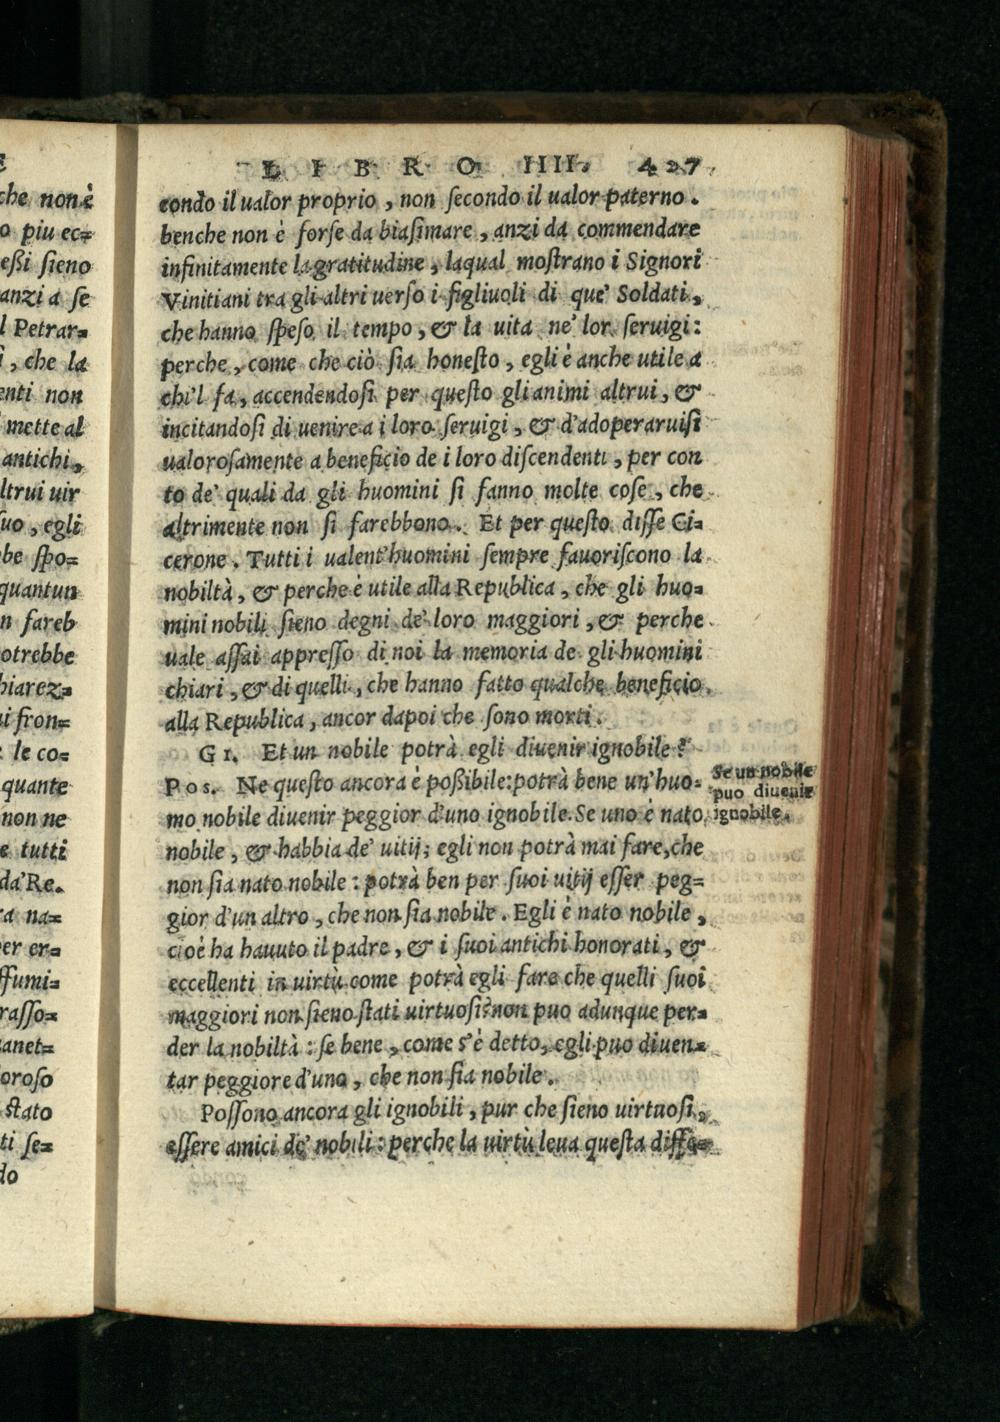 LIBRO IIII. 427
condo il ualor proprio, non ſecondo il ualor paterno.
benche non è forſe da biaſimare, anzi da commendare
infinitamente la gratitudine, laqual moſtrano i Signori
Vinitiani tra gli altri uerſo i figliuoli di que' Soldati,
che hanno ſpeſo il tempo, & la uita ne' lor ſeruigi:
perche, come che ciò ſia honeſto, egli è anche utile a
chi'l fa, accendendoſi per queſto gli animi altrui, &
incitandoſi di uenire a i loro ſeruigi, & d'adoperaruiſi
ualoroſamente a beneficio de i loro diſcendenti, per con
to de' quali da gli huomini ſi fanno molte coſe, che
altrimente non ſi farebbono. Et per queſto diſſe Ci=
cerone. Tutti i ualent'huomini ſempre fauoriſcono la
nobiltà, & perche è utile alla Republica, che gli huo=
mini nobili ſieno degni de' loro maggiori, & perche
uale aſſai appreſſo di noi la memoria de gli huomini
chiari, & di quelli, che hanno fatto qualche beneficio
alla Republica, ancor dapoi che ſono morti.
GI. Et un nobile potrà egli diuenir ignobile?
POS. Ne queſto ancora è poßibile: potrà bene un'huo=
mo nobile diuenir peggior d'uno ignobile. Se uno è nato
nobile, & habbia de' uitij; egli non potrà mai fare, che
non ſia nato nobile: potrà ben per ſuoi uitij eſſer peg=
gior d'un altro, che non ſia nobile. Egli è nato nobile,
cioè ha hauuto il padre, & i ſuoi antichi honorati, &
eccellenti in uirtù come potrà egli fare che quelli ſuoi
maggiori non ſieno ſtati uirtuoſi? non puo adunque per=
der la nobiltà: ſe bene, come s'è detto, egli puo diuen=
tar peggiore d'uno, che non ſia nobile.
Poſſono ancora gli ignobili, pur che ſieno uirtuoſi,
eſſere amici de' nobili: perche la uirtù leua queſta diffe=
Se un nobile
puo diuenir
ignobile.
che non è
o piu ec=
eßi ſieno
anzi a ſe
l Petrar=
, che la
enti non
mette al
antichi,
ltrui uir
ſuo, egli
be ſpo=
quantun
n fareb
otrebbe
hiarez=
i fron=
le co=
quante
non ne
e tutti
da'Re.
ra na=
er er=
ffumi=
raſſo=
anet=
oroſo
ſtato
ti ſe=
do